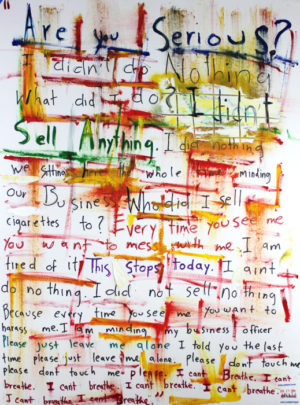 "Are you Serious?
I didn't do Nothing
What did I do? I didn't
Sell Anything. I did nothing
we sitting here the whole time minding
our Business. Who did I sell
cigarettes to? Every time you see me
You want to mess with me. I am
tired of it. This Stops today. I aint
do nothing. I did not sell nothing
Because every time you see me you want to
harass me. I am minding my business officer
Please just leave me alone I told you the last
time please just leave me alone. Please dont touch me
please dont touch me please. I cant Breathe. I cant
breathe. I cant breathe. I cant breathe. I cant breathe.
I cant breathe I cant Breathe."